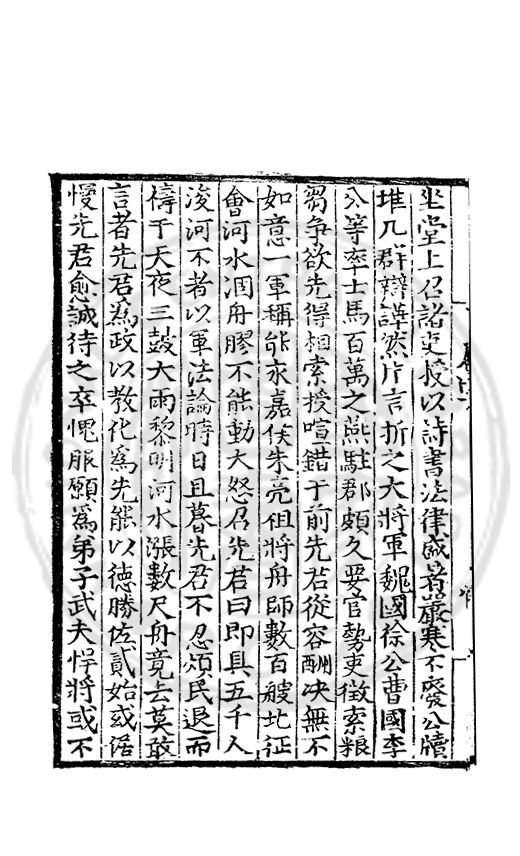 坐堂上召諸吏授以詩書法律盛暑嚴寒不廢公牘
堆几群辯譁然片言折之大將軍魏國徐公曹國李
公等率士馬百萬之燕駐郡頗久要官勢吏徵索粮
芻争欲先得相索授喧錯于前先君從容酬决無不
如意一軍稱能永嘉侯朱亮祖將舟師數百艘北征
會河水涸舟膠不能動大怒召先君曰即具五千人
浚河不者以軍法論時日且暮先君不忍煩民退而
禱于天夜三鼓大雨黎明河水漲數尺舟竟去莫敢
言者先君為政以教化為先能以德勝佐貳始或倨
慢先君愈誠待之卒愧服願為弟子武夫悍將或不